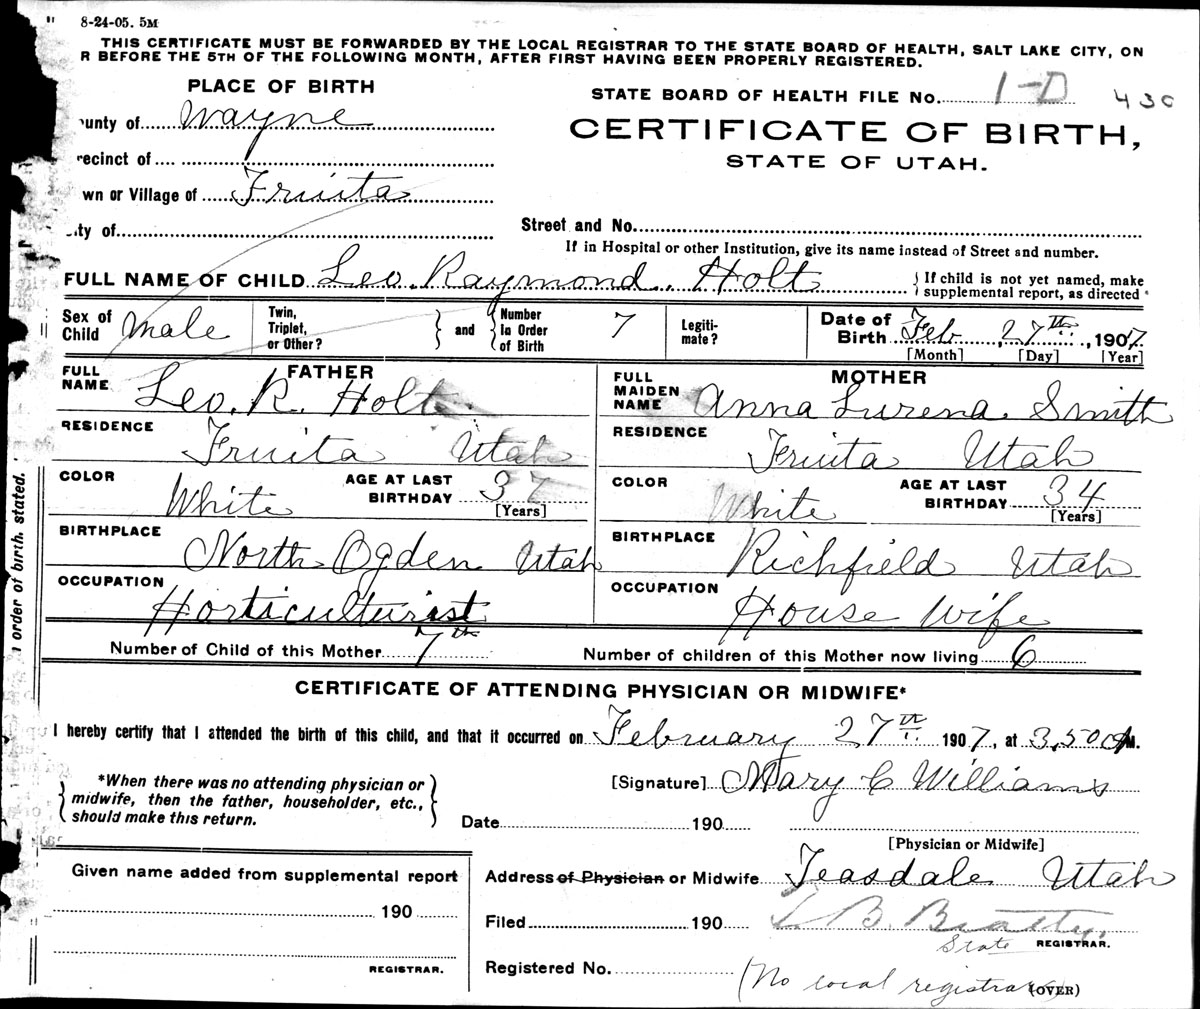 8-24-05. 5M
THIS CERTIFICATE MUST BE FORWARDED BY THE LOCAL REGISTRAR TO THE STATE BOARD OF HEALTH, SALT LAKE CITY, ON
R BEFORE THE 5TH OF THE FOLLOWING MONTH, AFTER FIRST HAVING BEEN PROPERLY REGISTERED.
PLACE OF BIRTH
STATE BOARD OF HEALTH FILE No. 1-D 430
unty of Wayne
CERTIFICATE OF BIRTH,
STATE OF UTAH.
recinct of
wn or Village of Fruita
ity of
Street and No.
If in Hospital or other Institution, give its name instead of Street and number.
FULL NAME OF CHILD Leo Raymond Holt
If child is not yet named, make
supplemental report, as directed
Sex of Child Male
Twin, Triplet, or Other? and Number In Order of Birth 7
Legiti-mate?
Date of Birth Feb, 27th, 1907.
[Month] [Day] [Year]
FATHER
FULL NAME Leo. R. Holt
RESIDENCE Fruita Utah
COLOR White
AGE AT LAST BIRTHDAY 37
[Years]
BIRTHPLACE North Ogden Utah
OCCUPATION Horticulturist
MOTHER
FULL MAIDEN NAME Anna Lurena Smith
RESIDENCE Fruita Utah
COLOR White
AGE AT LAST BIRTHDAY 34
[Years]
BIRTHPLACE Richfield Utah
OCCUPATION House Wife
Number of Child of this Mother 7th
Number of children of this Mother now living 6
CERTIFICATE OF ATTENDING PHYSICIAN OR MIDWIFE*
I hereby certify that I attended the birth of this child, and that it occurred on February 27th 1907, at 3.50 M.
*When there was no attending physician or
midwife, then the father, householder, etc.,
should make this return.
[Signature] Mary C Williams
Date 190
[Physician or Midwife]
Given name added from supplemental report
190
REGISTRAR.
Address of Physician or Midwife Teasdale Utah
Filed 190 B. Beatty.
State REGISTRAR.
Registered No.
(No local registrar)
(OVER)
order of birth stated.